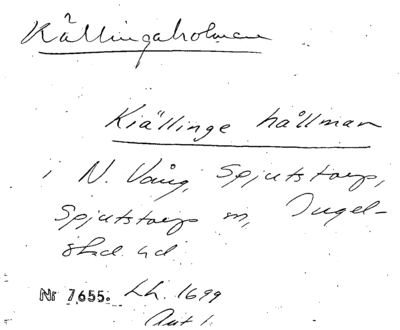 Källingaholman
Kiällinge hållman
i N. Vång, Spjutstorp,
Spjutstorps sn, Ingel-
stad hd
Nr 7655. Lh. 1699
Akt 1.